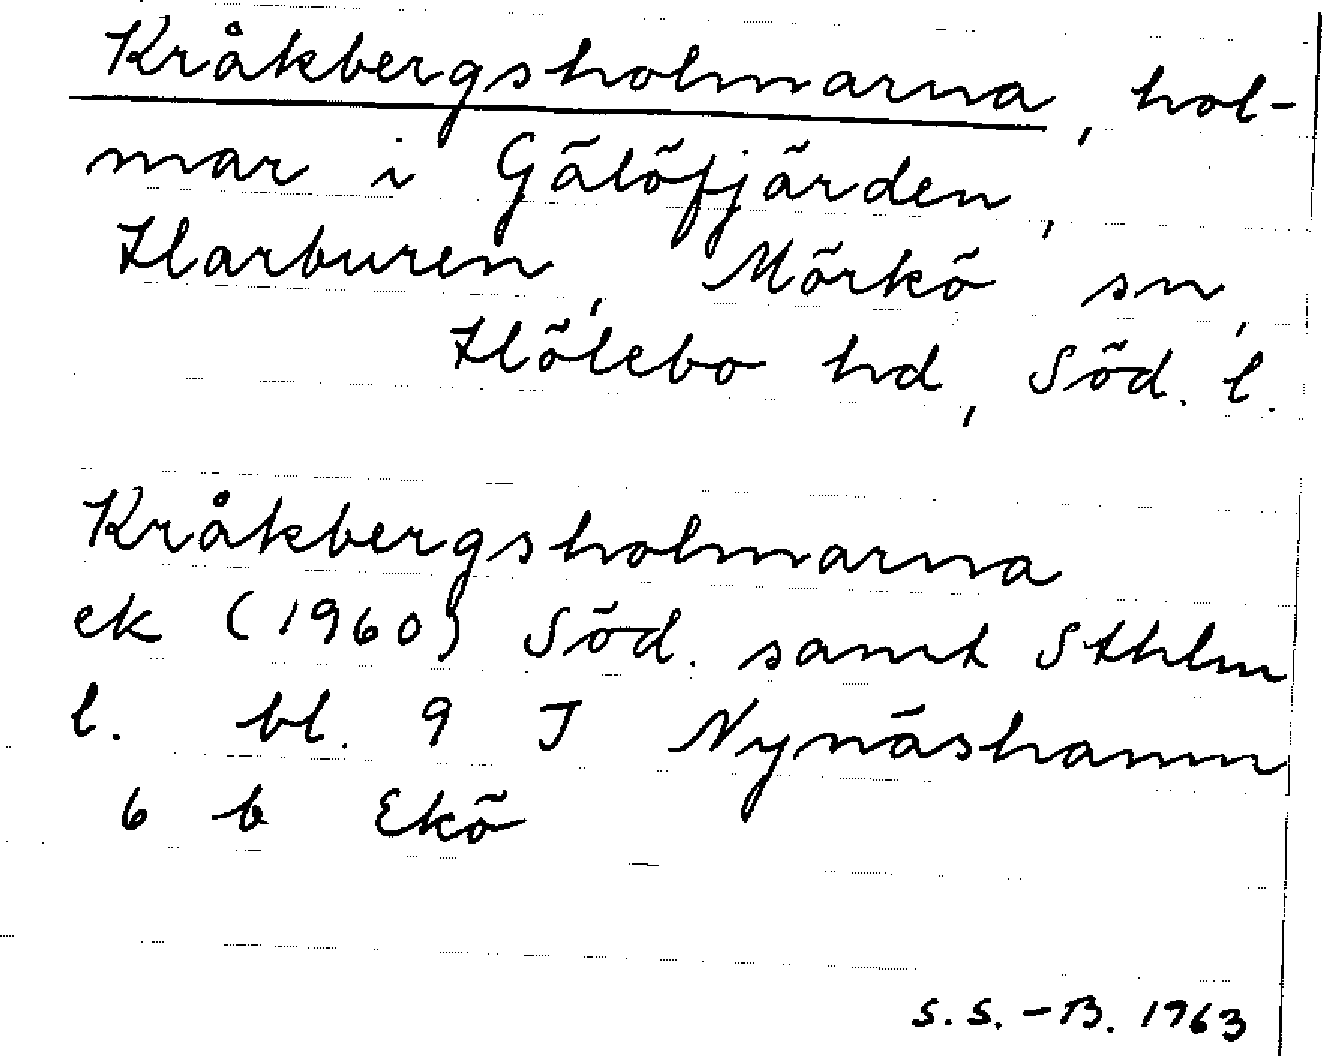 Kråkbergsholmarna, hol-
mar i Gälöfjärden,
Harburen, Mörkö sn,
Hölebo hd, Söd. l.
Kråkbergsholmarna
ek (1960) Söd. samt Sthlm
l. bl. 9 J Nynäshamn
6 b Ekö
S.S.-B. 1963